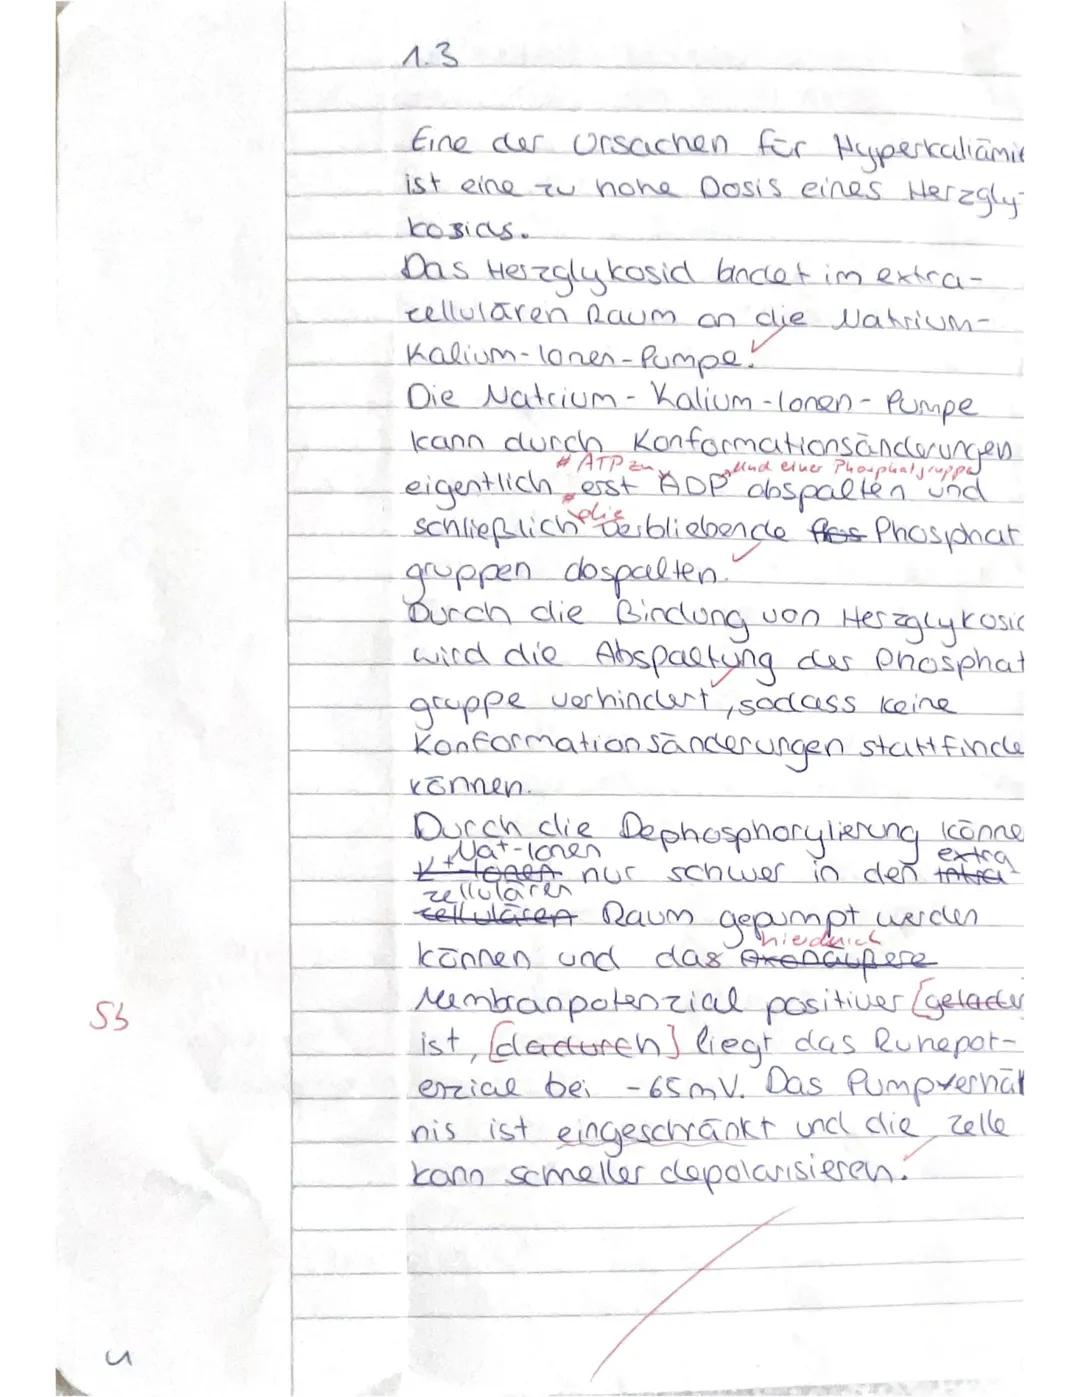 1.3
Eine der Ursachen für Hyperkaliämie
ist eine zu hohe Dosis eines Herzgly-
kosids.
Das Herzglykosid bindet im extra-
zellulären Raum an die Natrium-
Kalium-Ionen-Pumpe.
Die Natrium-Kalium-Ionen-Pumpe
kann durch Konformationsänderungen
# ATP zu und einer Phosphatgruppe
eigentlich erst ADP abspalten und
die
schließlich verbliebende Phosphat
gruppen abspalten.
Durch die Bindung von Herzglykosid
wird die Abspaltung der Phosphat
gruppe verhindert, sodass keine
Konformationsänderungen stattfinde
können.
Durch die Dephosphorylierung könne
Na+-Ionen extra
K+-Ionen nur schwer in den intra
zellulären
zellulären Raum gepumpt werden
hierdurch
können und das Axonäußere
Membranpotenzial positiver [gelader
Sb
ist, [dadurch] liegt das Ruhepot-
enzial bei -65mV. Das Pumpverhäl
nis ist eingeschränkt und die Zelle
kann schneller depolarisieren.
4